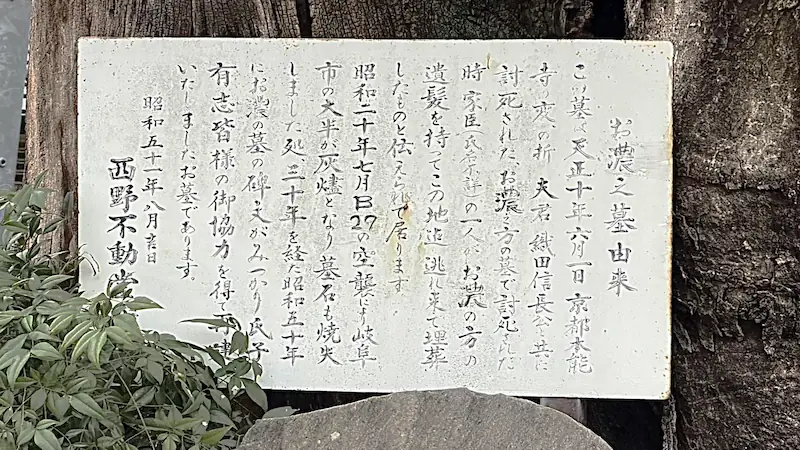 お濃之墓由来
この墓は天正十年六月一日京都本能
寺の変の折 夫君 織田信長公と共に
討死されたお濃の方の墓で討死された
時 家臣(氏名不詳)の一人がお濃の方の
遺髪を持ってこの地迄 逃れ来て埋葬
したものと伝えられて居ります
昭和二十年七月B29の空襲により岐阜
市の大半が灰燼となり墓石も焼失
しました処、三十年を経た昭和五十年
にお濃の墓の碑文がみつかり 氏子
有志皆様の御協力を得て
いたしましたお墓であります。
昭和五十一年八月吉日
西野不動堂